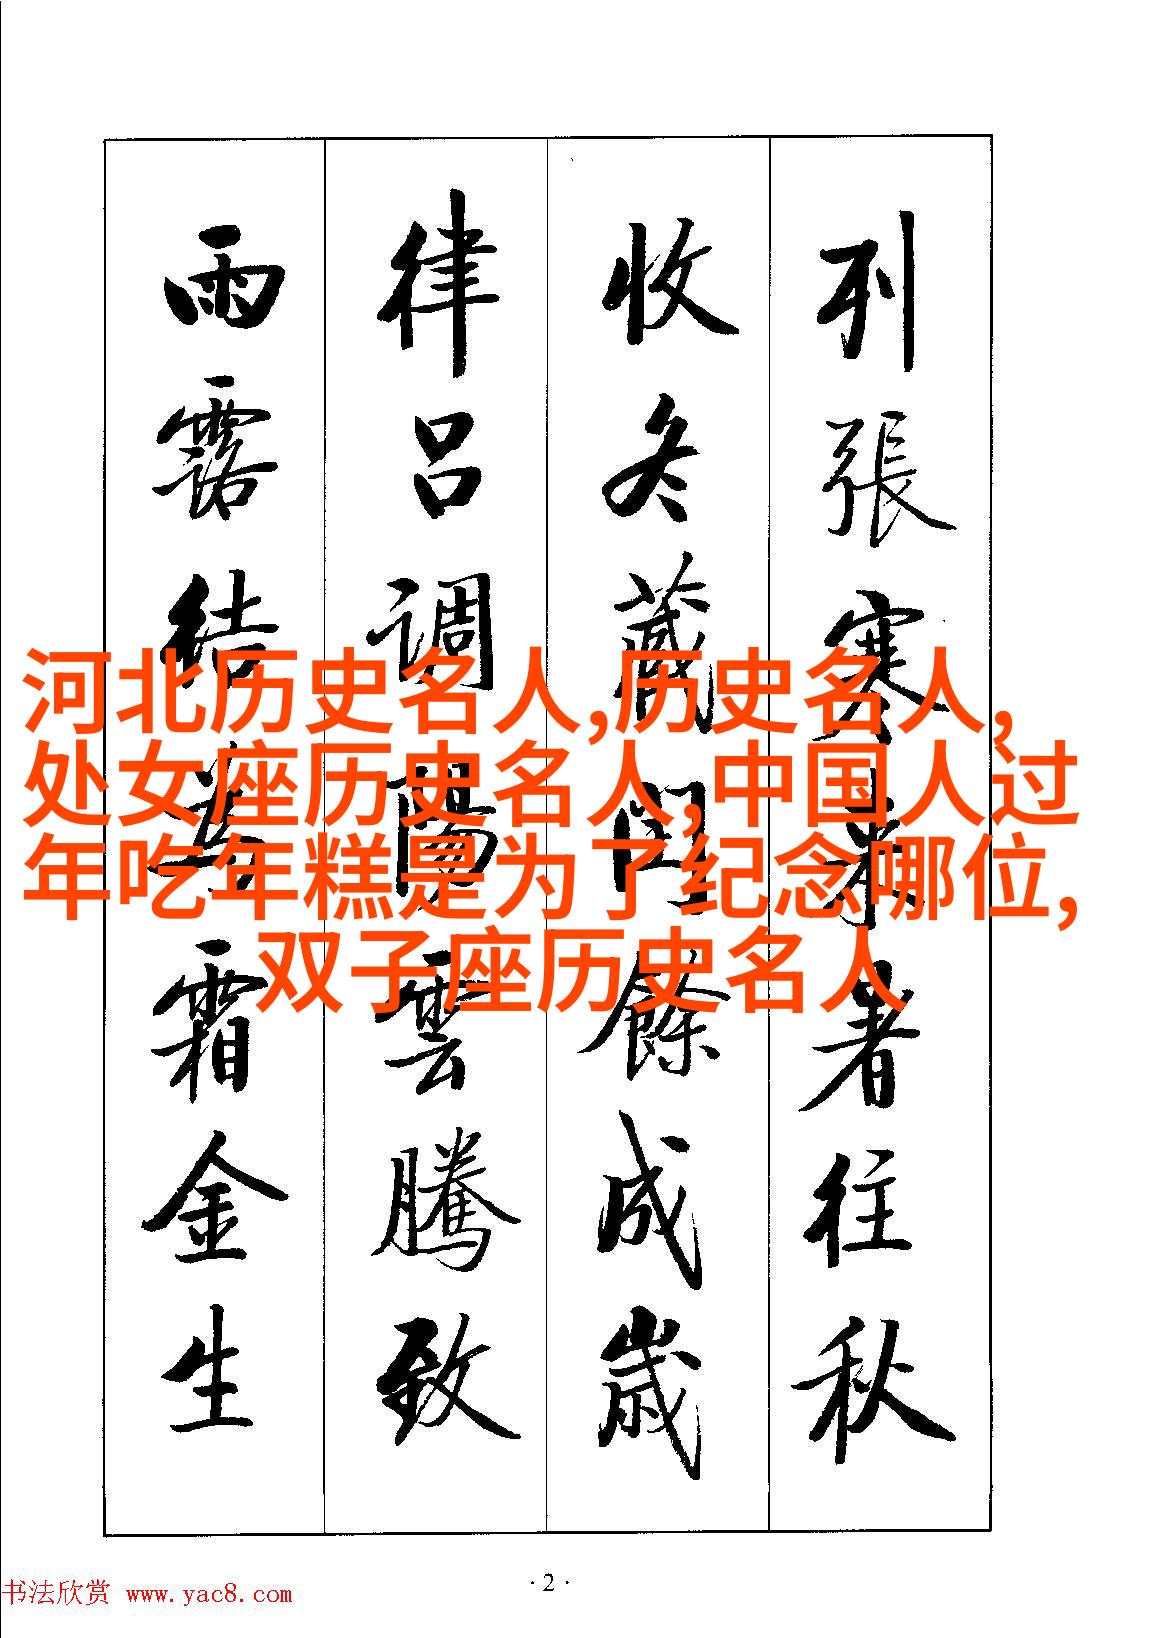 列張寒来暑往秋
收冬藏閏餘成歲
律吕调陽雲騰致
雨露结為霜金生
河北历史名人,历史名人,
处女座历史名人,中国人过
年吃年糕是为了纪念哪位,
双子座历史名人
·2·
书法欣赏 www.yac8.com